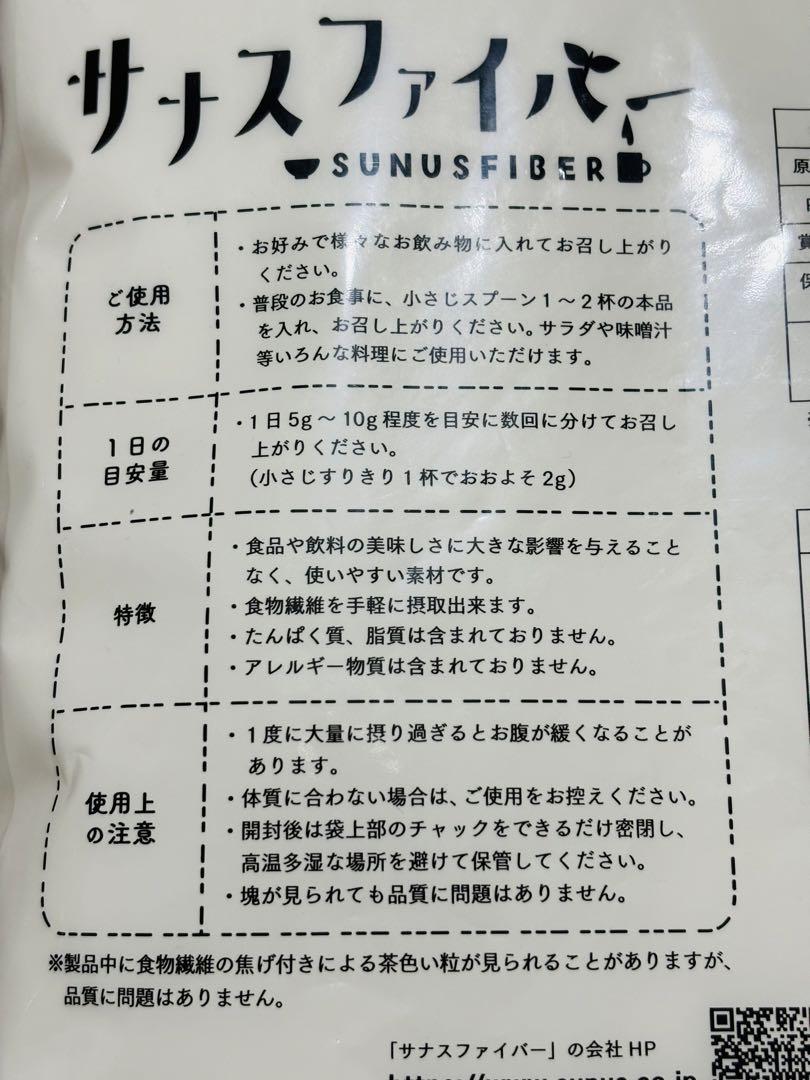 サナスファイバー
SUNUSFIBER
ご使用
方法
・お好みで様々なお飲み物に入れてお召し上がり
ください。
・普段のお食事に、小さじスプーン1～2杯の本品
を入れ、お召し上がりください。サラダや味噌汁
等いろんな料理にご使用いただけます。
1日の
目安量
・1日5g～10g程度を目安に数回に分けてお召し
上がりください。
(小さじすりきり1杯でおおよそ2g)
特徴
・食品や飲料の美味しさに大きな影響を与えること
なく、使いやすい素材です。
・食物繊維を手軽に摂取出来ます。
・たんぱく質、脂質は含まれておりません。
・アレルギー物質は含まれておりません。
使用上
の注意
・1度に大量に摂り過ぎるとお腹が緩くなることが
あります。
・体質に合わない場合は、ご使用をお控えください。
・開封後は袋上部のチャックをできるだけ密閉し、
高温多湿な場所を避けて保管してください。
・塊が見られても品質に問題はありません。
※製品中に食物繊維の焦げ付きによる茶色い粒が見られることがありますが、
品質に問題はありません。
「サナスファイバー」の会社HP
https://www.sunus.co.jp
原
賞
保